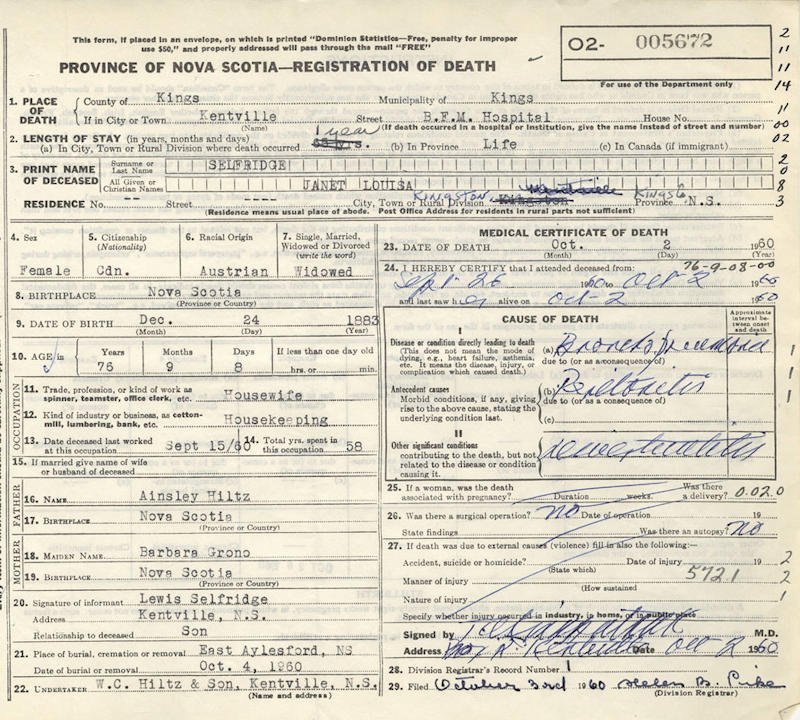 This form, if placed in an envelope, on which is printed "Dominion Statistics—Free, penalty for improper
use $50," and properly addressed will pass through the mail "FREE"
PROVINCE OF NOVA SCOTIA—REGISTRATION OF DEATH
02- 005672
For use of the Department only
2
11
11
14
11
00
02
2
0
8
3
1. PLACE OF DEATH
County of Kings Municipality of Kings
If in City or Town Kentville Street B.F.M. Hospital House No.
(Name) (If death occurred in a hospital or Institution, give the name instead of street and number)
2. LENGTH OF STAY (in years, months and days) 1 year
(a) In City, Town or Rural Division where death occurred yrs. (b) In Province Life (c) In Canada (if immigrant)
3. PRINT NAME OF DECEASED
Surname or Last Name SELFRIDGE
All Given or Christian Names JANET LOUISA
RESIDENCE No. -- Street ---- City, Town or Rural Division KINGSTON Province N.S.
(Residence means usual place of abode. Post Office Address for residents in rural parts not sufficient)
4. Sex
Female
5. Citizenship (Nationality)
Cdn.
6. Racial Origin
Austrian
7. Single, Married, Widowed or Divorced (write the word)
Widowed
8. BIRTHPLACE Nova Scotia
(Province or Country)
9. DATE OF BIRTH Dec. 24 1883
(Month) (Day) (Year)
10. AGE
Years Months Days If less than one day old
76 9 8 hrs. or min.
OCCUPATION
11. Trade, profession, or kind of work as
spinner, teamster, office clerk, etc. Housewife
12. Kind of industry or business, as cotton-
mill, lumbering, bank, etc. Housekeeping
13. Date deceased last worked at this occupation Sept 15/60 14. Total yrs. spent in this occupation 58
15. If married give name of wife
or husband of deceased
FATHER
16. NAME Ainsley Hiltz
17. BIRTHPLACE Nova Scotia
(Province or Country)
MOTHER
18. MAIDEN NAME Barbara Grono
19. BIRTHPLACE Nova Scotia
(Province or Country)
20. Signature of informant Lewis Selfridge
Address Kentville, N.S.
Relationship to deceased Son
21. Place of burial, cremation or removal East Aylesford, NS
Date of burial or removal Oct. 4, 1960
22. UNDERTAKER W.C. Hiltz & Son, Kentville, N.S.
(Name and address)
MEDICAL CERTIFICATE OF DEATH
23. DATE OF DEATH Oct. 2 1960
(Month) (Day) (Year)
76-9-08-00
24. I HEREBY CERTIFY that I attended deceased from:
Sept 26 1960 to Oct-2 1960
and last saw her alive on Oct-2 1960
CAUSE OF DEATH
Approximate interval between onset and death
I
Disease or condition directly leading to death
(This does not mean the mode of dying, e.g., heart failure, asthma, etc. It means the disease, injury, or complication which caused death.)
(a) Bronchopneumonia
due to (or as a consequence of)
Antecedent causes
Morbid conditions, if any, giving rise to the above cause, stating the underlying condition last.
(b)
due to (or as a consequence of)
(c)
II
Other significant conditions
contributing to the death, but not related to the disease or condition causing it.
25. If a woman, was the death associated with pregnancy? Duration weeks. Was there a delivery? 0.02.0
26. Was there a surgical operation? NO Date of operation 19
State findings Was there an autopsy? NO
27. If death was due to external causes (violence) fill in also the following:—
Accident, suicide or homicide? Date of injury 19
(State which)
Manner of injury 572.1
(How sustained)
Nature of injury
Specify whether injury occurred in industry, in home, or in public place
2
2
1
Signed by M.D.
Address Kentville Date Oct-2 1960
28. Division Registrar's Record Number 1
29. Filed October 3rd 1960 Helen B. Pike
(Division Registrar)